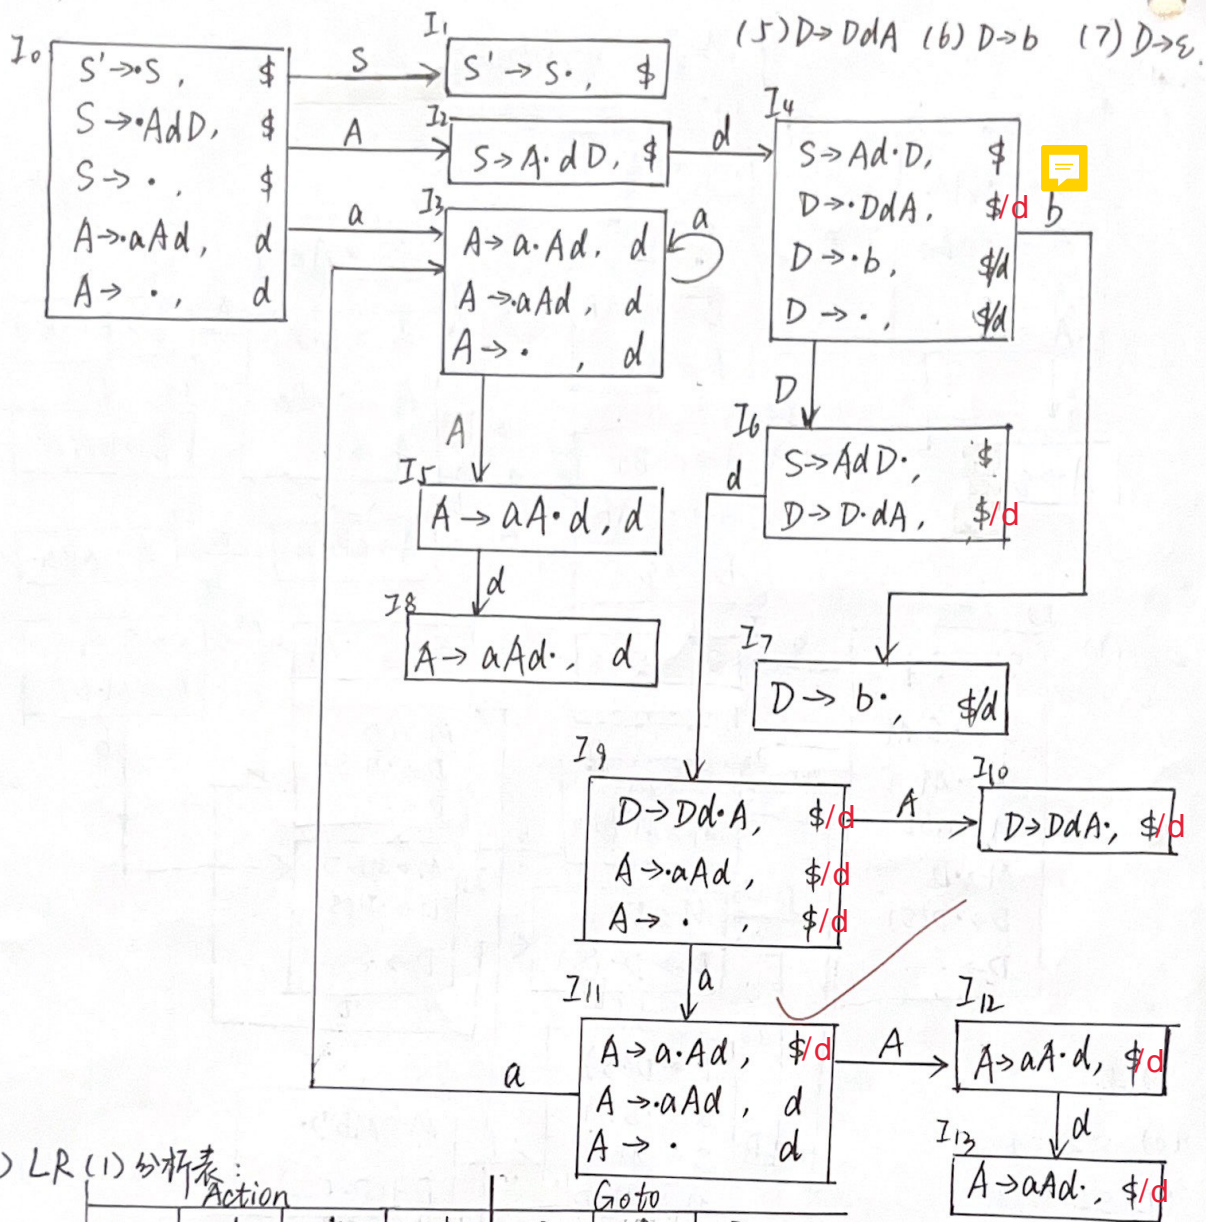 (5) D→DdA (6) D→b (7) D→ε.
I0
S'→·S, $
S→·AdD, $
S→·, $
A→·aAd, d
A→ ·, d
S
A
a
I1
S'→S·, $
I2
S→A·dD, $
d
I3
A→a·Ad, d
A→·aAd, d
A→· , d
a
I4
S→Ad·D, $
D→·DdA, $/d
D→·b, $/d
D→·, $/d
b
A
D
I5
A→aA·d, d
d
I6
S→AdD·, $
D→D·dA, $/d
d
I8
A→aAd·, d
I7
D→b·, $/d
I9
D→Dd·A, $/d
A→·aAd, $/d
A→ · , $/d
A
I10
D→DdA·, $/d
a
I11
A→a·Ad, $/d
A→·aAd, d
A→ · d
a
A
I12
A→aA·d, $/d
d
I13
A→aAd·, $/d
) LR(1)分析表:
Action Goto